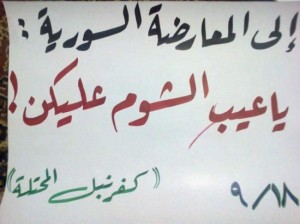 إلى المعارضة السورية :
ياعيب الشوم عليكن !
(( كفرنبل المحتلة )) ٩/١٨